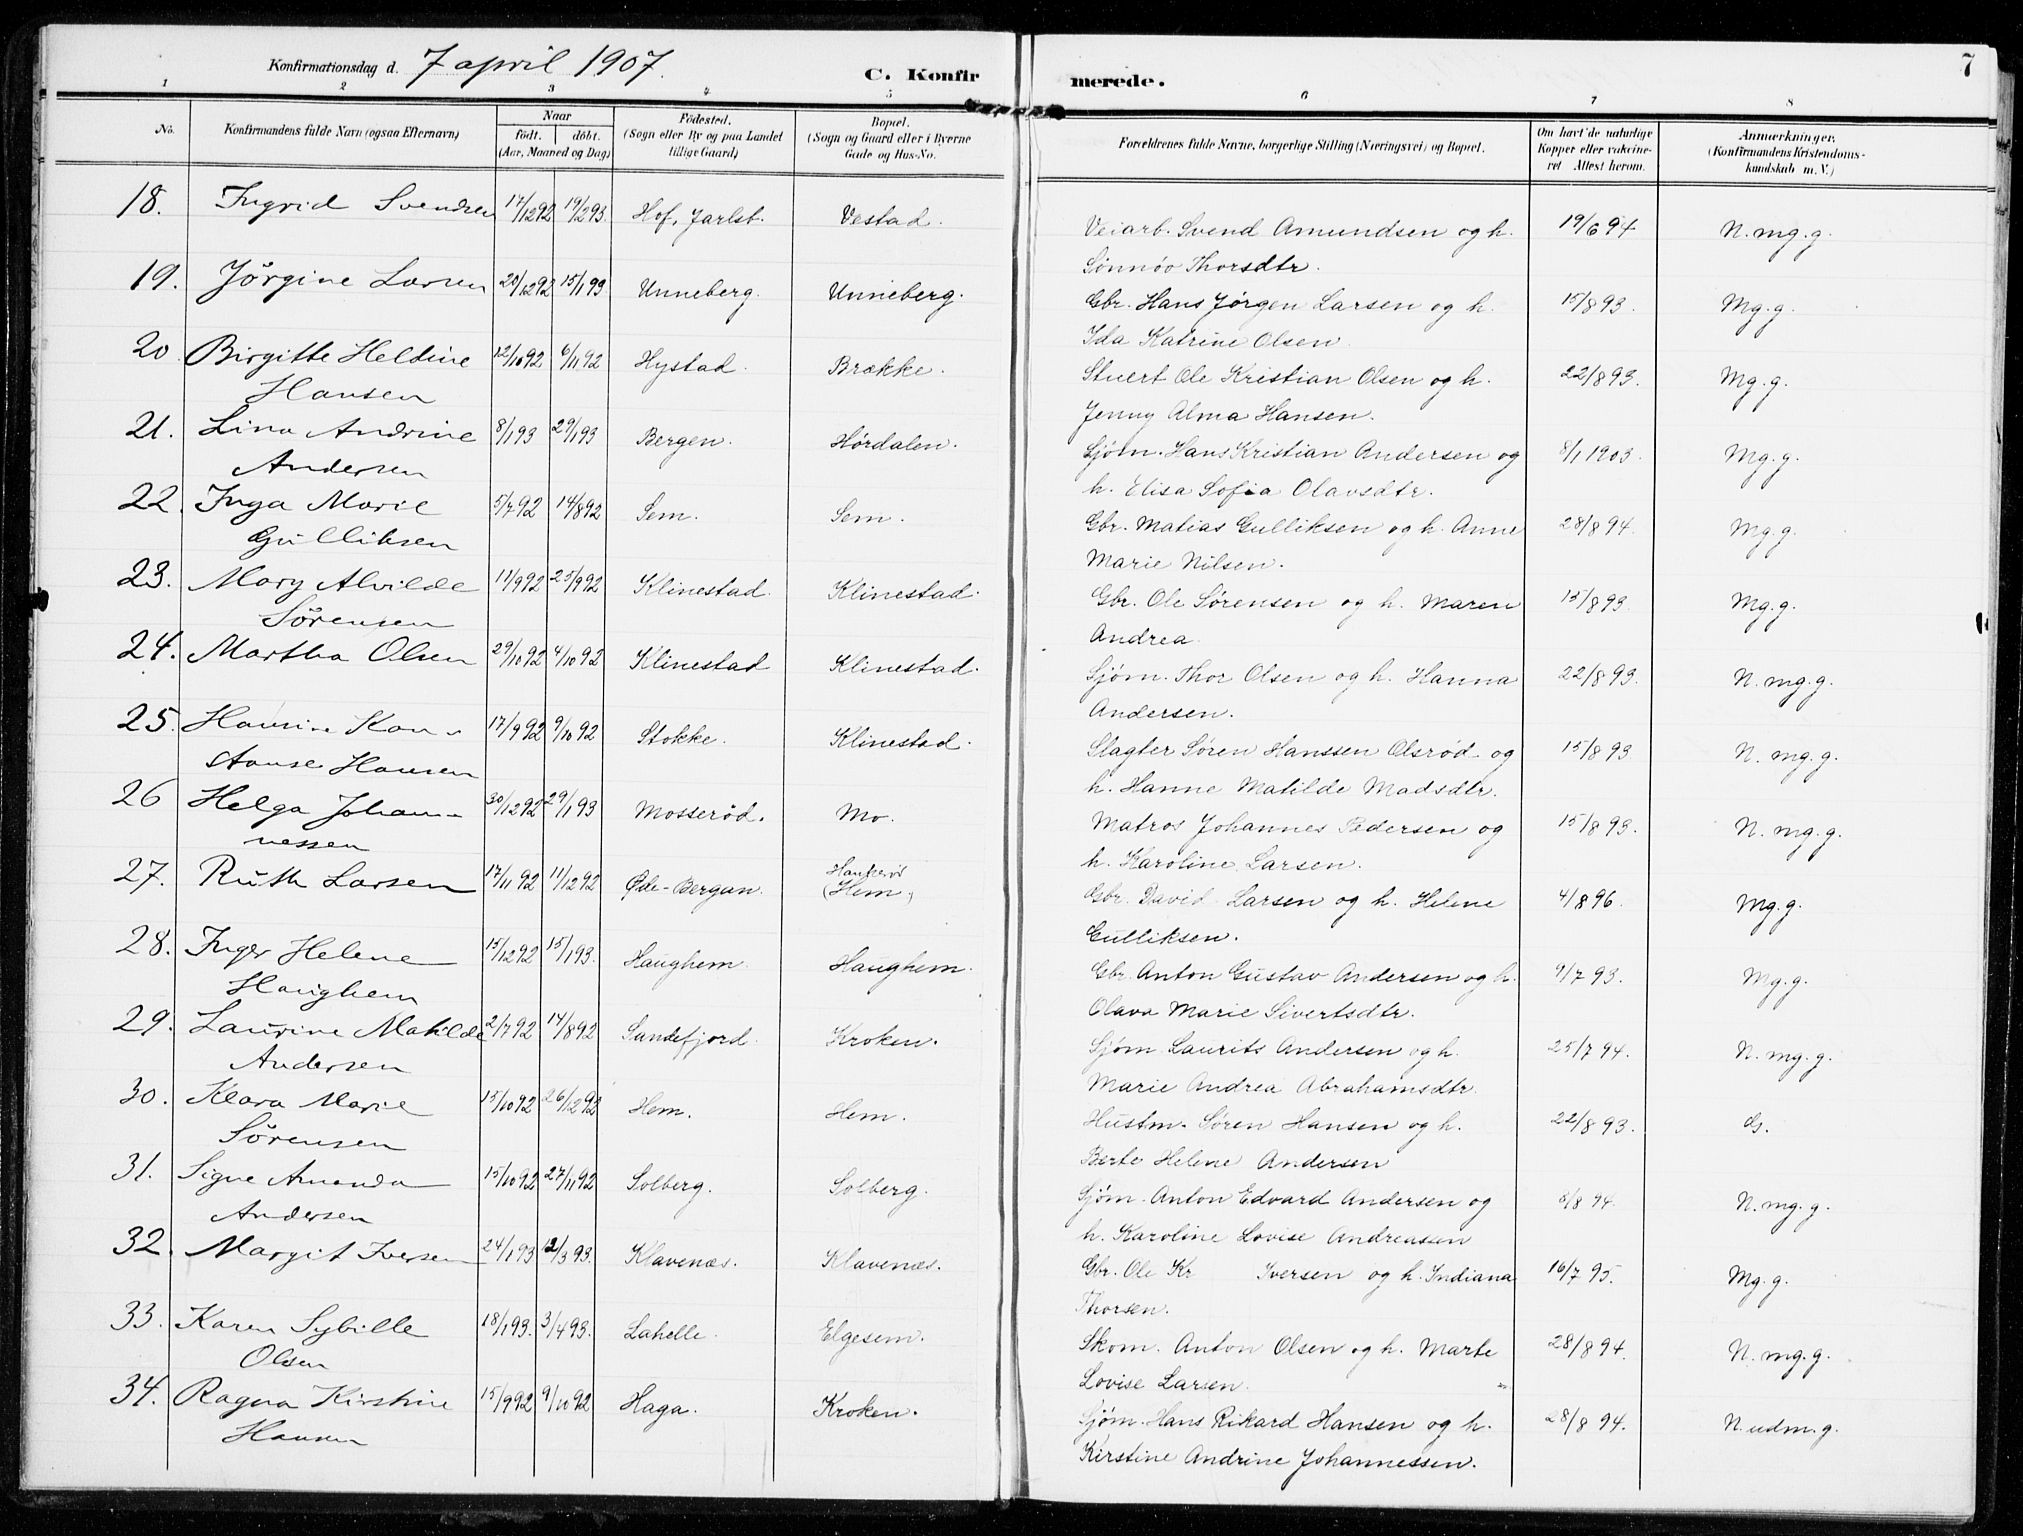 Konfirmationsdag d. 7 april 1907. C. Konfirmerede. 7
1 2 3 4 5 6 7 8
No. Konfirmandens fulde Navn (ogsaa Efternavn) Naar født. døbt. (Aar, Maaned og Dag) Fødested. (Sogn eller By og paa Landet tillige Gaard) Bopæl. (Sogn og Gaard eller i Byerne Gade og Hus-No. Forældrenes fulde Navne, borgerlige Stilling (Næringsvei) og Bopæl. Om havt de naturlige Kopper eller vakcineret Attest herom. Anmærkninger. (Konfirmandens Kristendomskundskab m. V.)
18. Ingrid Svendsen 17/12 92 19/2 93. Hof, Jarlsb. Vestad. Veiarb. Svend Amundsen og h. 19/6 94 N. mg. g.
Sønnøv Thorsdtr.
19. Jörgine Larsen 20/12 92 15/1 93 Unneberg. Unneberg. Gbr. Hans Jørgen Larsen og h. 15/8 93. Mg. g.
Ida Katrine Olsen.
20. Birgitte Heldine 12/10 92 6/11 92 Hystad. Brække. Stuert Ole Kristian Olsen og h. 22/8 93. Mg. g.
Hansen Jenny Alma Hansen.
21. Lina Andrine 8/1 93 29/1 93 Bergen. Hørdalen. Sjøm. Hans Kristian Andersen og 8/1 1903. Mg. g.
Andersen h. Elisa Sofia Olavsdtr.
22. Inga Marie 5/7 92 14/8 92 Sem. Sem. Gbr. Matias Gulliksen og h. Anne 28/8 94. Mg. g.
Gulliksen Marie Nilsen.
23. Mary Alvilde 11/9 92 25/9 92 Klinestad. Klinestad. Gbr. Ole Sørensen og h. Maren 15/8 93. Mg. g.
Sörensen Andrea.
24. Martha Olsen 29/10 92 4/10 92 Klinestad Klinestad. Sjøm. Thor Olsen og h. Hanna 22/8 93. N. mg. g.
Andersen.
25. Hansine Kon- 17/9 92 9/10 92 Stokke. Klinestad. Slagter Søren Hanssen Olsrød og 15/8 93 N. mg. g.
stanse Hansen h. Hanne Matilde Madsdtr.
26 Helga Johan- 30/12 92 29/1 93 Mosserød. Mo. Matros Johannes Pedersen og 15/8 93. N. mg. g.
nessen h. Karoline Larsen.
27. Ruth Larsen 17/11 92 11/12 92 Øde-Bergan. (Hem) Gbr. David Larsen og h. Helene 4/8 96. Mg. g.
Gulliksen.
28. Inger Helene 15/12 92 15/1 93. Haughem. Haughem. Gbr. Anton Gustav Andersen og h. 9/7 93. Mg. g.
Haughem Olava Marie Sivertsdtr.
29. Laurine Mathilde 2/7 92 14/8 92 Sandefjord. Kroken. Sjøm. Laurits Andersen og h. 25/7 94. N. mg. g.
Andersen Marie Andrea Abrahamsdtr.
30. Klara Marie 15/10 92 26/12 92 Hem. Hem. Hustm. Søren Hansen og h. 22/8 93. G.
Sörensen Berte Helene Andersen
31. Signe Amanda 15/10 92 27/11 92 Solberg. Solberg. Sjøm. Anton Edvard Andersen og 8/8 94. N. mg. g.
Andersen h. Karoline Lovise Andreassen
32. Margit Iversen 24/1 93 12/3 93. Klavenæs. Klavenæs. Gbr. Ole Kr Iversen og h. Indiana 16/7 95. Mg. g.
Thorsen.
33. Karen Sybille 18/1 93. 3/4 93. Lahelle. Elgesem. Skom. Anton Olsen og h. Marte 28/8 94. N. mg. g.
Olsen Lovise Larsen.
34. Ragna Kirstine 15/9 92 9/10 92 Haga. Kroken. Sjøm. Hans Rikard Hansen og h. 28/8 94. N. udm. g.
Hansen Kirstine Andrine Johannessen.